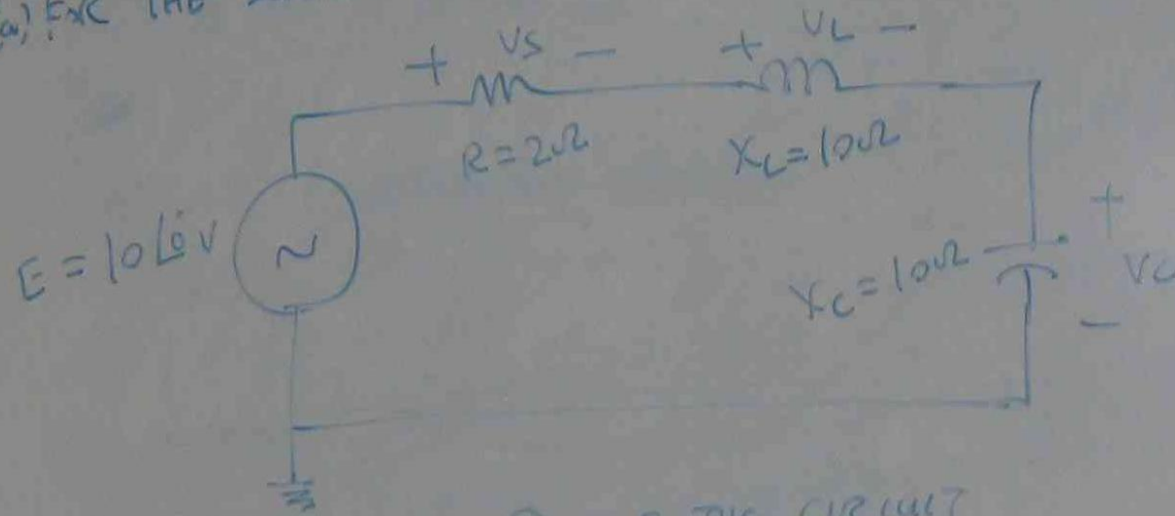 a) THE
+ VS - + VL -
R=2Ω XL=10Ω
E=10∠0° V ~ XC=10Ω + VC -
THE CIRCUIT